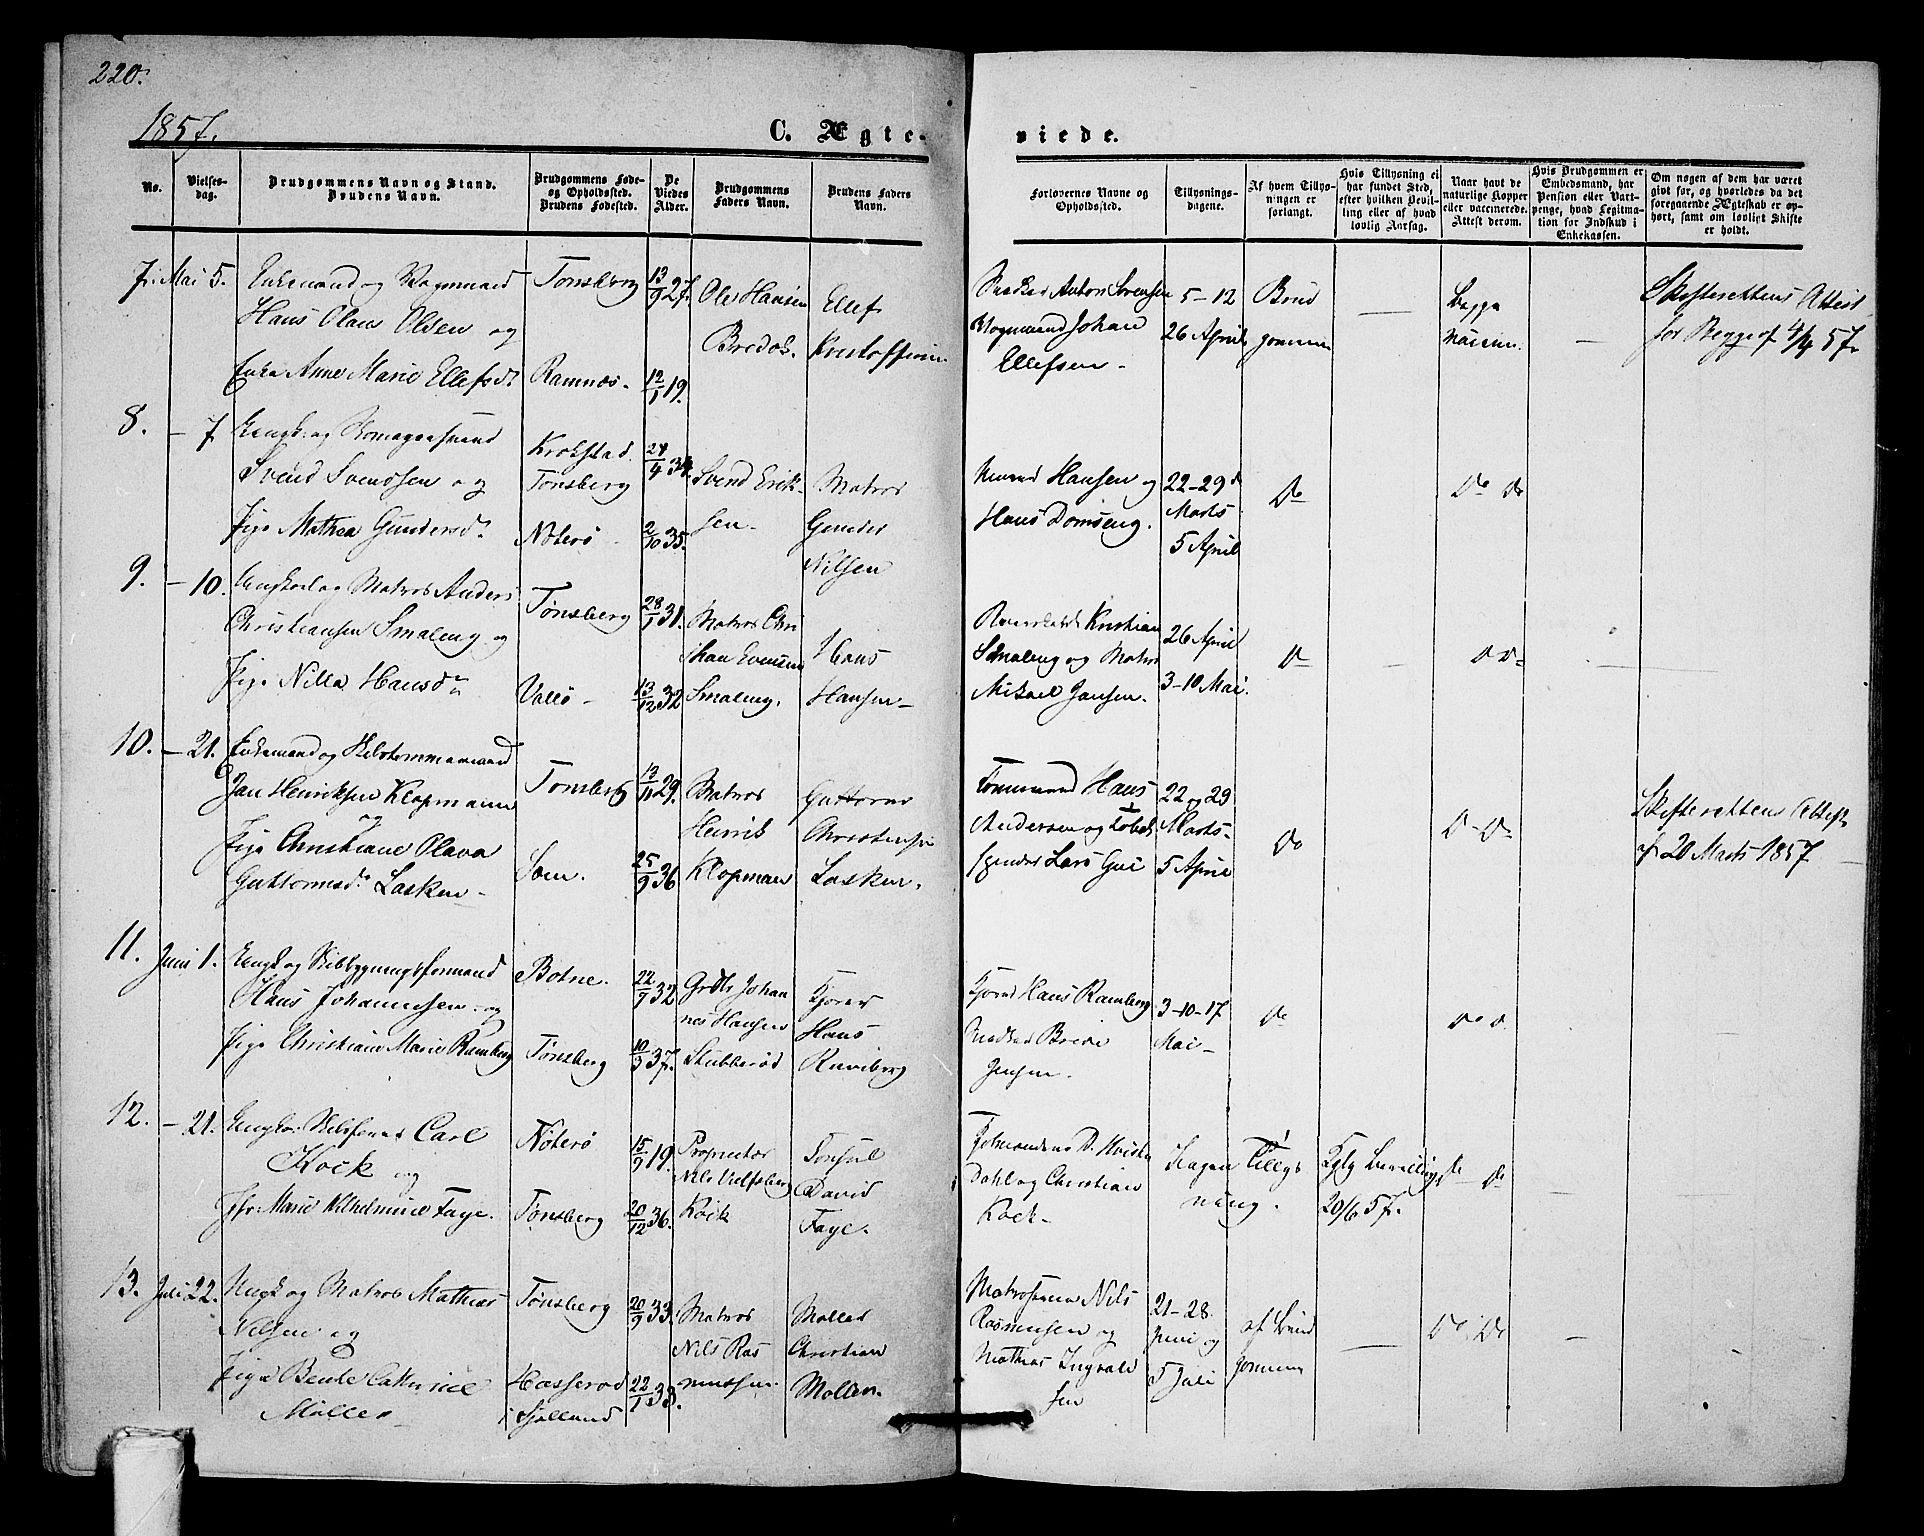 220.
1857.
C. Ægte-
viede.
No.
Vielses-
dag.
Brudgommens Navn og Stand.
Brudens Navn.
Brudgommens Føde-
og Opholdssted.
Brudens Fødested.
De
Viedes
Alder.
Brudgommens
Faders Navn.
Brudens Faders
Navn.
Forlovernes Navne og
Opholdssted.
Tillysnings-
dagene.
Af hvem Tillys-
ningen er
forlangt.
Hvis Tillysning ei
har fundet Sted,
efter hvilken Bevil-
ling eller af hvad
lovlig Aarsag.
Naar havt de
naturlige Kopper
eller vaccinerede.
Attest derom.
Hvis Brudgommen er
Embedsmand, har
Pension eller Vart-
penge, hvad Legitima-
tion for Indskud i
Enkekassen.
Om nogen af dem har været
gift før, og hvorledes da det
foregaaende Ægteskab er op-
hørt, samt om lovligt Skifte
er holdt.
7. Mai 5. Enkemand og Vognmand
Hans Olaus Olsen og
Enke Anne Marie Ellefsdr
Tonsberg
Ramnæs.
13/9 27.
12/1 19.
Ole Hansen
Bredok.
Ellef
Kristoffersen
Anton Sørensen
Vognmand Johan
Ellefsen
5-12
26 April
Brud
gommen
Begge
vaccin.
Skifterettens Attest
for Begge af 4/4 57.
8. - 7 Ungk. og
Svend Svendsen og
Pige Mathea Gundersdr
Krokstad.
Tønsberg
Nøterø
24/4 34.
2/10 35.
Svend Erik-
sen
Matros
Gunder
Nilsen
Hansen og
Hans Domseng.
22-29d
Marts
5 April
Do
Do Do
9. - 10. Ungkarl og Matros Anders
Christiansen Smaleng og
Pige Nilla Hansdr
Tønsberg
Vallø
28/1 31.
13/12 32
Matros Chri
stian Evensen
Smaleng.
Hans
Hansen
Kristian
Smaleng og Matros
Mikael Jansen.
26 April
3-10 Mai.
Do
Do Do
10. - 21. Enkemand og Skibstømmermand
Jan Henriksen Klopmann
og
Pige Christiane Olava
Guttormsdr Lasken
Tønsberg
Sem.
13/11 29.
25/9 36
Matros
Henrik
Klopman
Guttorm
Christensen
Lasken.
Tømmermand Hans
Andersen og
Lars
22 og 29
Marts
5 April
Do
Do Do
Skifterettens Attest
af 20 Marts 1857
11. Juni 1. Ungk og Skibbygningsformand
Hans Johannesen og
Pige Christiane Marie Ramberg
Botne.
Tønsberg
22/9 32
10/3 37.
Grdbr Johan
nes Hansen
Skubberød
Kjører
Hans
Ramberg
Kjører Hans Ramberg
Brede
Jensen.
3-10-17
Mai
Do
Do Do
12. - 21. Ungk. Skibsfører Carl
Kock og
Jfr. Marie Vilhelmine Faye.
Nøterø
Tønsberg
15/9 19.
20/12 36.
Proprietær
Nils
Kock
Consul
David
Faye.
Dahl og Christian
Kock
Ingen Tillys
ning.
Kglg Bevilling
20/6 57.
Do Do
13. Juli 22. Ungk og Matros Mathias
Nilsen og
Pige Bente Cathrine
Møller
Tønsberg
Hasserød
i Sjølland
20/9 33.
22/1 33.
Matros
Nils Ras
mussen
Møller
Christian
Møller.
Matroserne Nils
Rasmussen og
Mathias Ingvald
sen
21-28
Juni og
5 Juli
af Brud
gommen
Do Do